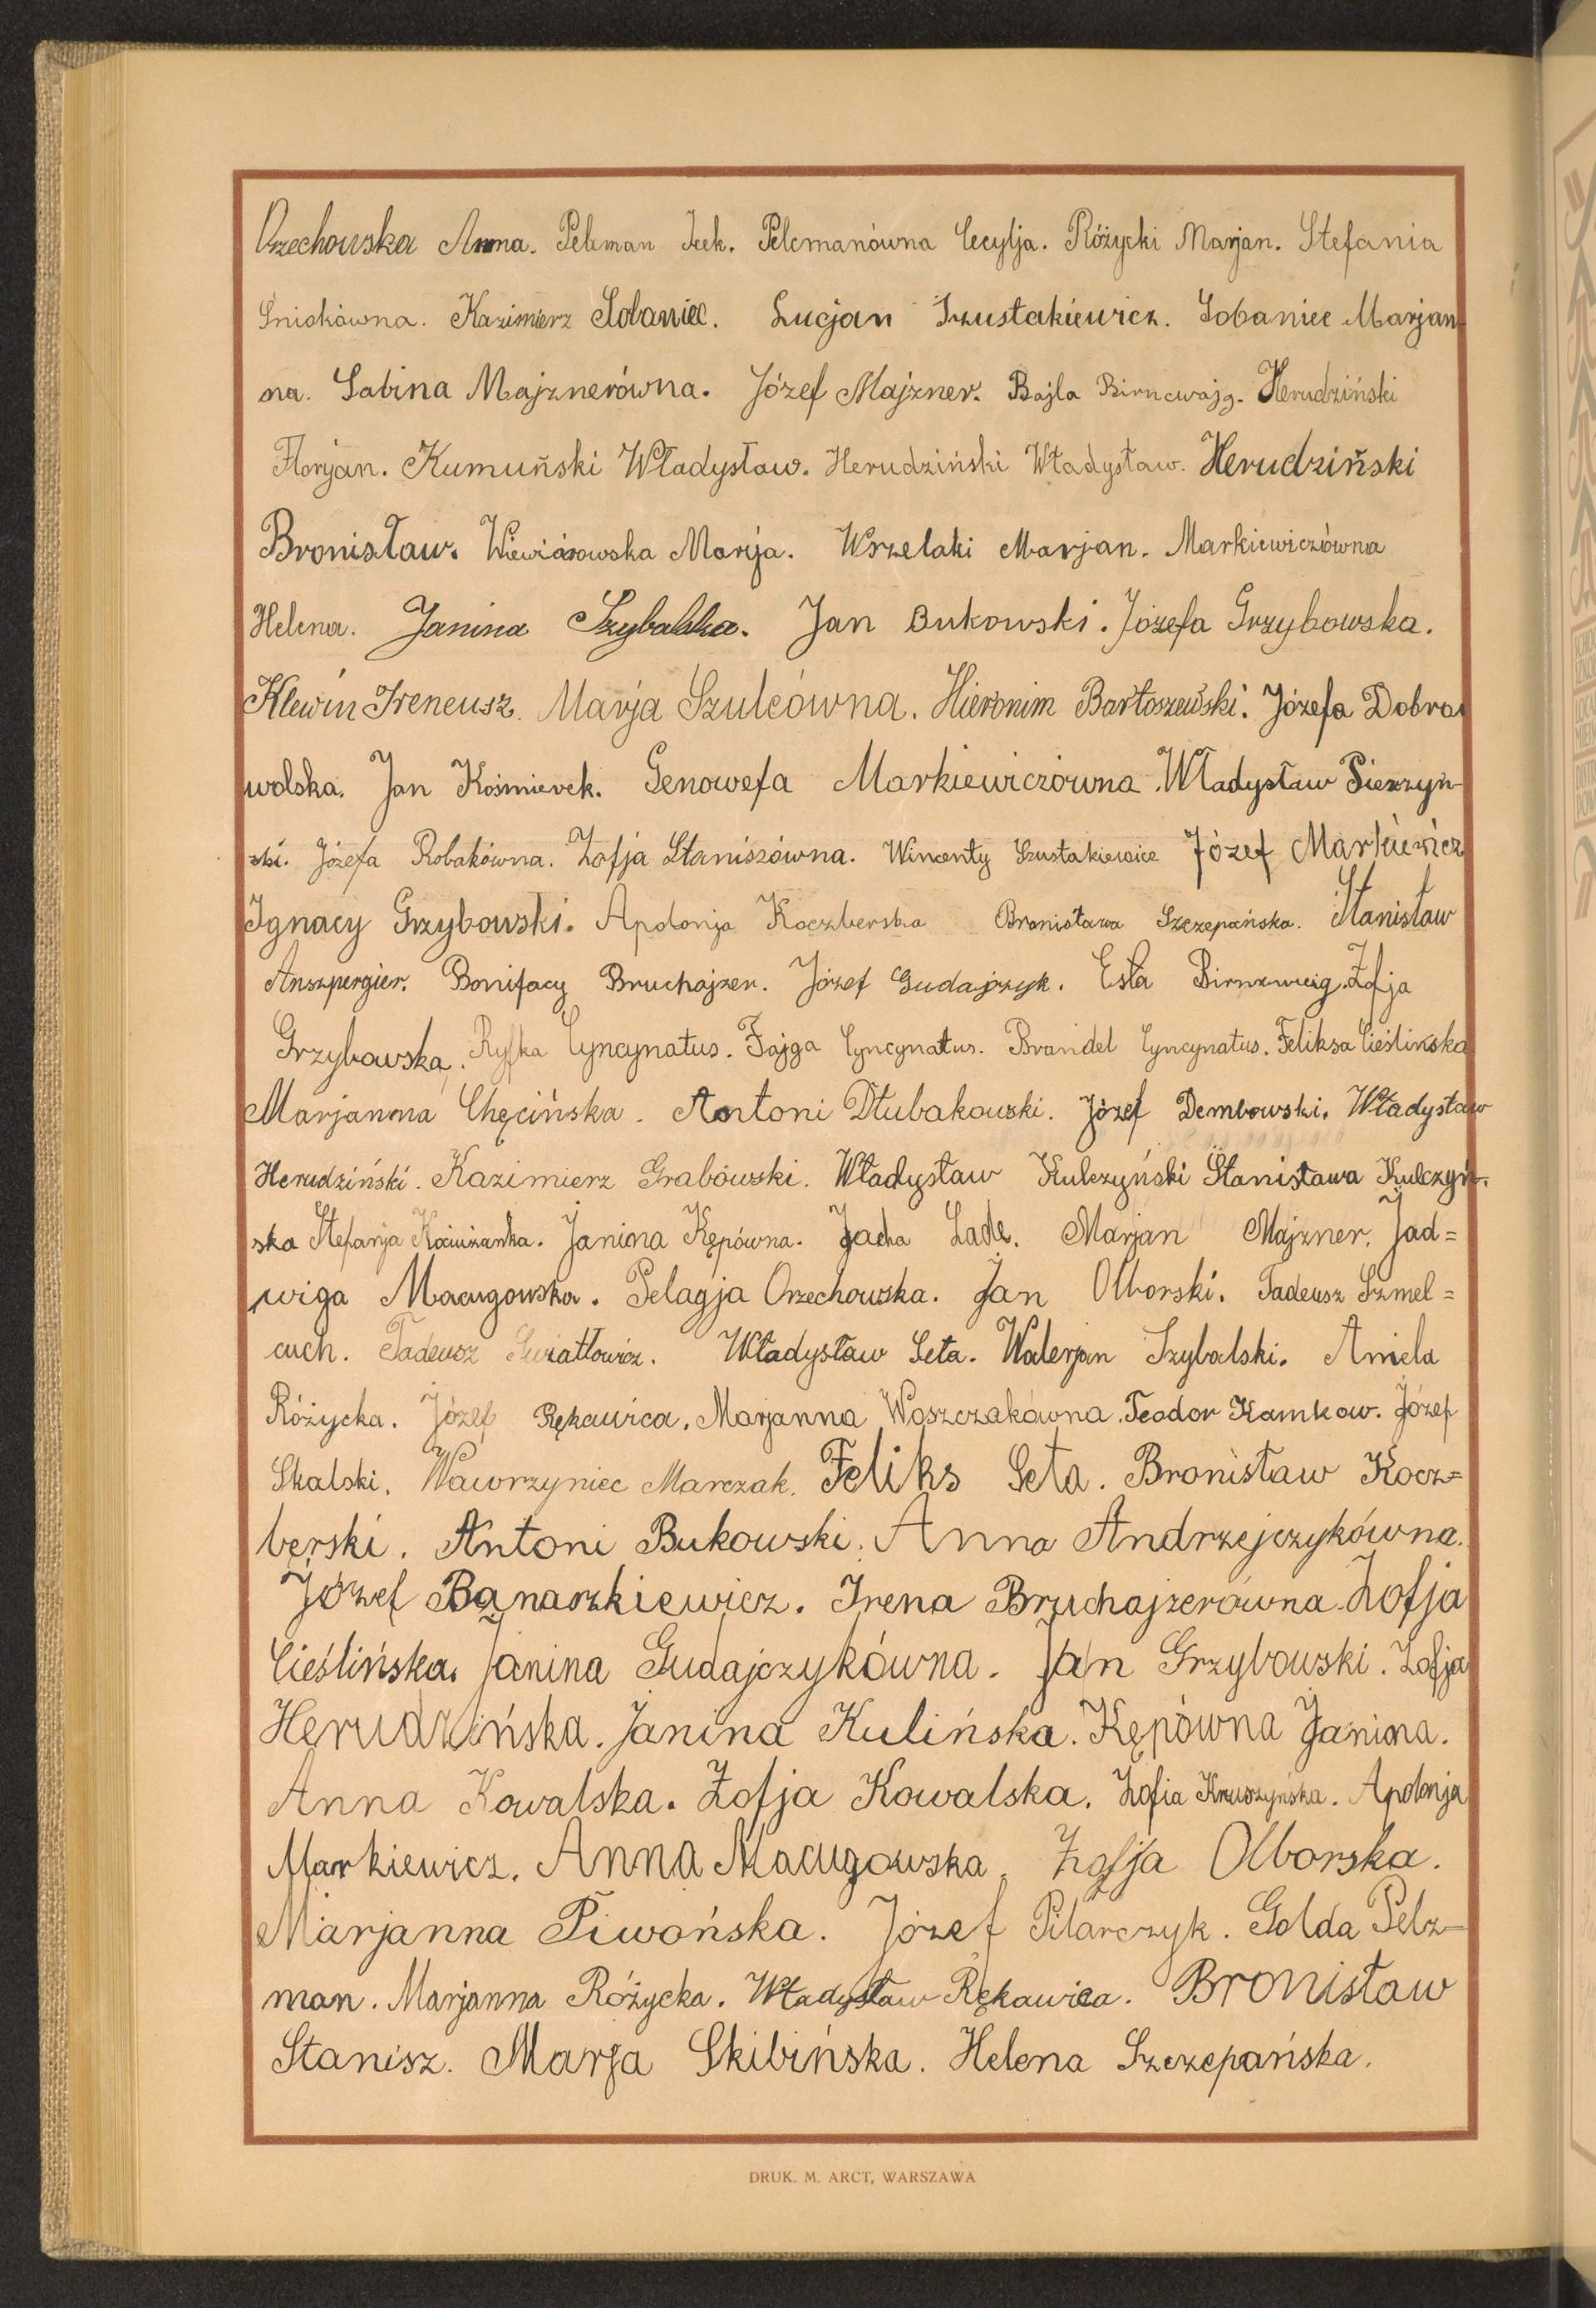 Orzechowska Anna. Pelcman Icek. Pelcmanówna Cecylja. Różycki Marjan. Stefania
Śniokówna. Kazimierz Sobaniec. Lucjan Szustakiewicz. Sobaniec Marjan-
na. Sabina Majznerówna. Józef Majzner. Bajla Birncwajg. Herudziński
Florjan. Kumuński Władysław. Herudziński Władysław. Herudziński
Bronisław. Wiewiórowska Marja. Wszelaki Marjan. Markiewiczówna
Helena. Janina Szybalska. Jan Bukowski. Józefa Grzybowska.
Klewin Ireneusz. Marja Szulcówna. Hieronim Bartoszewski. Józefa Dobro-
wolska. Jan Kośmierek. Genowefa Markiewiczówna. Władysław Pierzyń-
ski. Józefa Robakówna. Zofja Staniszówna. Wincenty Szustakiewicz Józef Markiewicz
Ignacy Grzybowski. Apolonja Koczberska Bronisława Szczepańska. Stanisław
Anszpergier. Bonifacy Bruchajzer. Józef Gudajczyk. Esta Birnzweig. Zofja
Grzybowska. Ryfka Cyncynatus. Fajga Cyncynatus. Brandel Cyncynatus. Feliksa Cieślińska
Marjanna Chęcińska. Antoni Dłubakowski. Józef Dembowski. Władysław
Herudziński. Kazimierz Grabówski. Władysław Kulczyński Stanisława Kulczyń-
ska Stefanja Kociużanka. Janina Kępówna. Jacha Lade. Marjan Majzner. Jad=
wiga Macugowska. Pelagja Orzechowska. Jan Olborski. Tadeusz Szmel=
cuch. Tadeusz Światłowicz. Władysław Seta. Walerjan Szybalski. Aniela
Różycka. Józef Rękawica. Marjanna Woszczakówna. Teodor Kamkow. Józef
Skalski. Wawrzyniec Marczak. Feliks Seta. Bronisław Kocz=
berski. Antoni Bukowski. Anna Andrzejczykówna.
Józef Banaszkiewicz. Irena Bruchajzerówna. Zofja
Cieślińska. Janina Gudajczykówna. Jan Grzybowski. Zofja
Herudzińska. Janina Kulińska. Kępówna Janina.
Anna Kowalska. Zofja Kowalska. Zofia Kruszyńska. Apolonja
Markiewicz. Anna Macugowska. Zofja Olborska.
Marjanna Piwońska. Józef Pilarczyk. Golda Pelz-
man. Marjanna Różycka. Władysław Rękawica. Bronisław
Stanisz. Marja Skibińska. Helena Szczepańska.
DRUK. M. ARCT, WARSZAWA